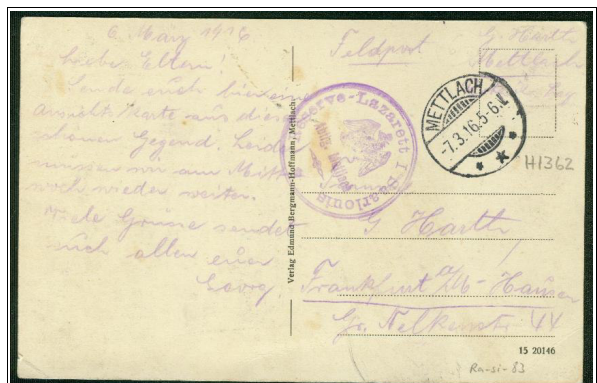 6. März 1916
Liebe Eltern!
Sende euch hiermit
Ansichtskarte aus dieser
schönen Gegend. Leider
müssen wir am Mittw
noch wieder weiter.
Viele Grüsse sendet
euch allen euer
Georg.
Verlag Edmund Bergmann-Hoffmann, Mettlach
Feldpost
G. Harth
Mettlach
Reserve-Lazarett I Saarlouis
METTLACH
-7.3.16.5-6.
H1362
G. Harth
Frankfurt a/M-Hausen
Gr. Nelkenstr. 44
15 20146
Ra-si-83